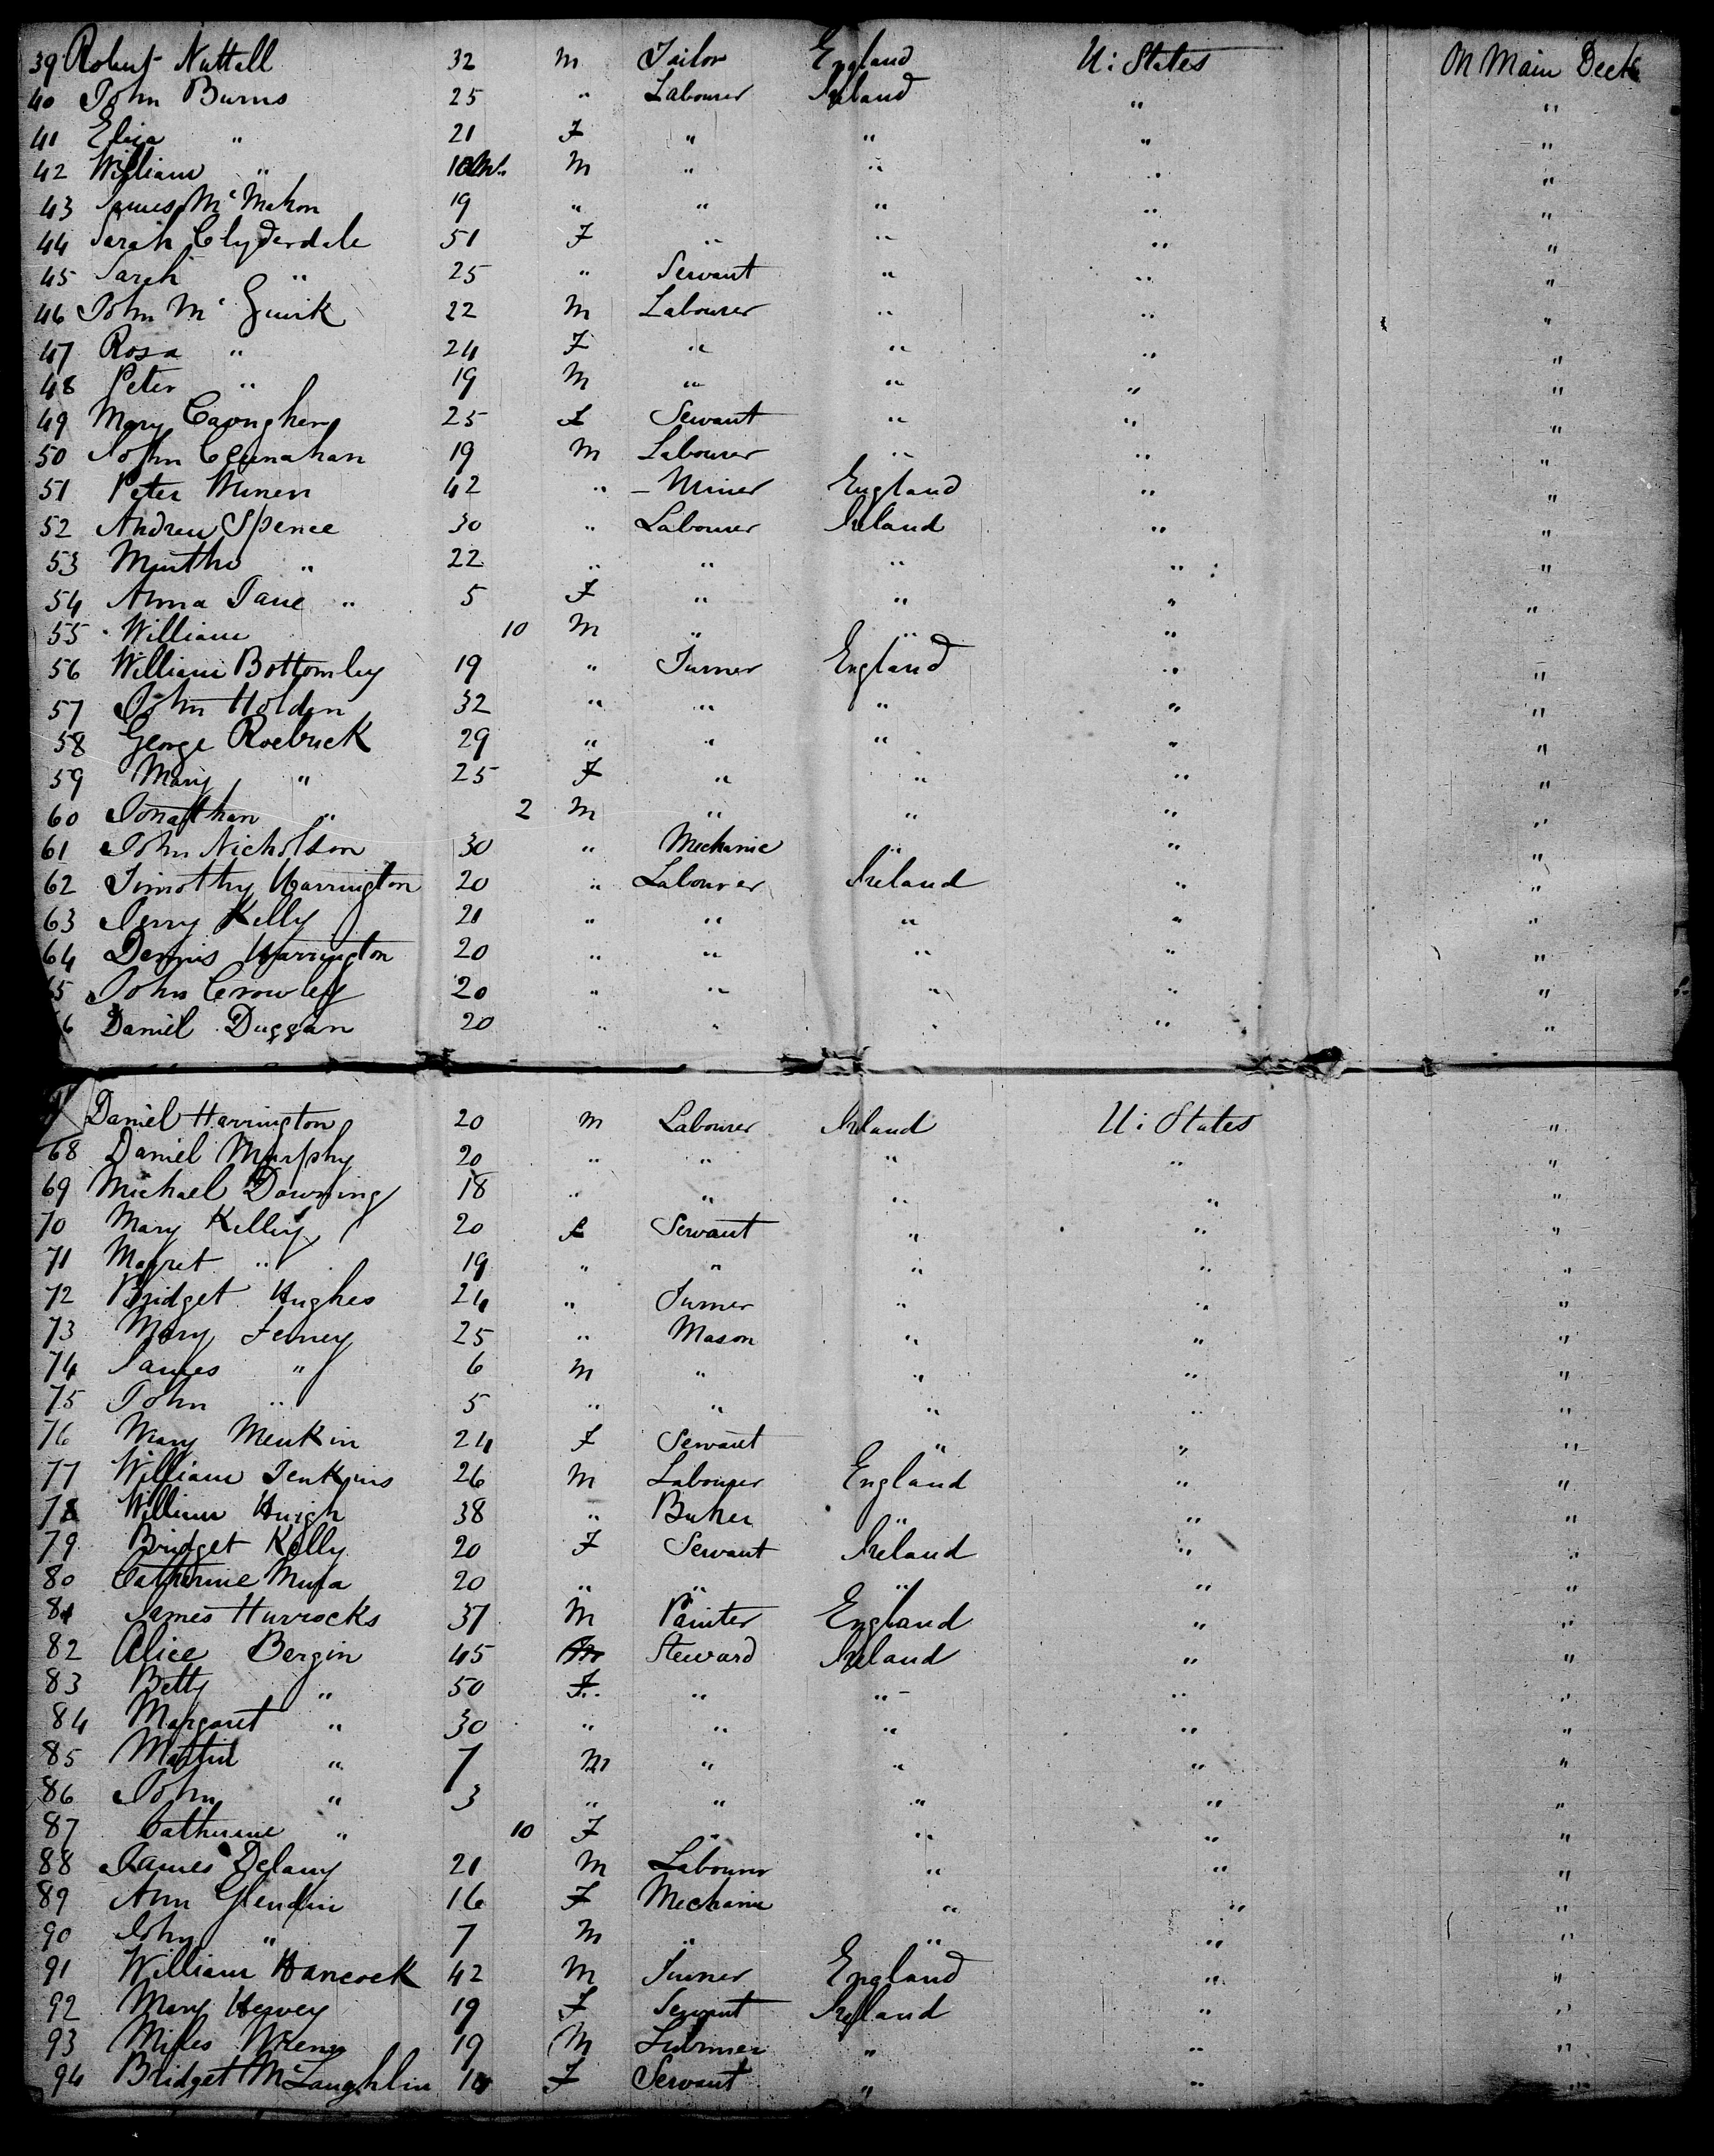 39 Robert Nuttall 32 M Tailor England U: States On Main Deck
40 John Burns 25 " Labourer Ireland " "
41 Eliza " 21 F " " " "
42 William " 10 M " " " "
43 James McMahon 19 " " " " "
44 Sarah Clyderdale 51 F " " " "
45 Sarah " 25 " Servant " " "
46 John Mc Guirk 22 M Labourer " " "
47 Rosa " 24 F " " " "
48 Peter " 19 M " " " "
49 Mary 25 F Servant " " "
50 John 19 M Labourer " " "
51 Peter 42 " Miner England " "
52 Andrew Spence 30 " Labourer Ireland " "
53 " 22 " " " " "
54 Anna Jane " 5 F " " " "
55 William 10 M " " "
56 William Bottomley 19 " Turner England " "
57 John Holden 32 " " " " "
58 George Roebuck 29 " " " " "
59 Mary " 25 F " " " "
60 Jonathan " 2 M " " " "
61 John Nicholson 30 " Mechanic " " "
62 Timothy Harrington 20 " Labourer Ireland " "
63 Jerry Kelly 21 " " " " "
64 Dennis Harrington 20 " " " " "
65 John Crowley 20 " " " " "
66 Daniel Duggan 20 " " " " "
Daniel Harrington 20 M Labourer Ireland U: States "
68 Daniel Murphy 20 " " " " "
69 Michael Downing 18 " " " " "
70 Mary Kelley 20 F Servant " " "
71 Magret " 19 " " " " "
72 Bridget Hughes 24 " Turner " " "
73 Mary Ferney 25 " Mason " " "
74 James " 6 M " " " "
75 John " 5 " " " " "
76 Mary Menkin 24 F Servant " " "
77 William Jenkins 26 M Labourer England " "
78 William 38 " " " "
79 Bridget Kelly 20 F Servant Ireland " "
80 Catherine 20 " " " " "
81 James Hurrocks 37 M Painter England " "
82 Alice Bergin 45 Steward Ireland " "
83 Betty " 50 F " " " "
84 Margaret " 30 " " " " "
85 Martin " 7 M " " " "
86 John " 3 " " " " "
87 Catherine " 10 F " " " "
88 James Delany 21 M Labourer " " "
89 Ann 16 F Mechanic " " "
90 John " 7 M " " " "
91 William Hancock 42 M Turner England " "
92 Mary Hervey 19 F Servant Ireland " "
93 Miles 19 M " " "
94 Bridget McLaughlin F Servant " " "